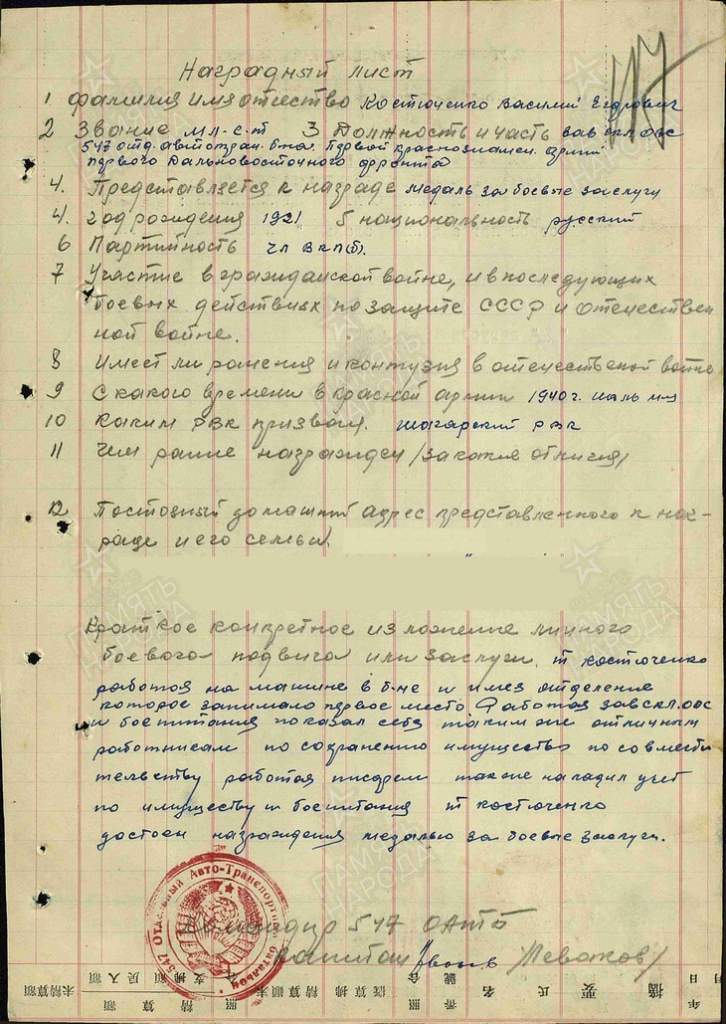 Наградный лист
1 Фамилия имя отчество Костюченко Василий Егорович
2 Звание мл. с-т 3 Должность и часть зав скл. ОВС
547 отд. автотран. б-на. Первой краснознамен. армии
первого Дальневосточного фронта
4. Представляется к награде медаль за боевые заслуги
4. год рождения 1921 5 национальность русский
6 Партийность чл ВКП(б).
7 Участие в гражданской войне, и в последующих
боевых действиях по защите СССР и отечествен
ной войне.
8 Имеет ли ранения и контузия в отечественой войне
9 С какого времени в красной армии 1940 г.
10 Каким РВК призван. РВК
11 Чем ранее награжден /за какие отличия/
12 Постояный домашний адрес представленного к наг-
раде и его семьи.
Краткое конкретное изложение личного
боевого подвига или заслуги. т Костюченко
работая на машине в б-не и имея отделение
которое занимало первое место Работая зав скл. ОВС
и боепитания показал себя таким же отличным
работникам по сохранению имущества по совмести
тельству работая писарем также наладил учет
по имуществу и боепитания т Костюченко
достоен награждения медалью за боевые заслуги.
547 Отдельный Авто-Транспортный батальон
Командир 547 ОАТБ
Капитан /Левахов/
未精算額 支拂額 照 未 精算額 概算拂 合 番號 名 氏 要 摘 月日
精算額 受入額 年
ПАМЯТЬ НАРОДА